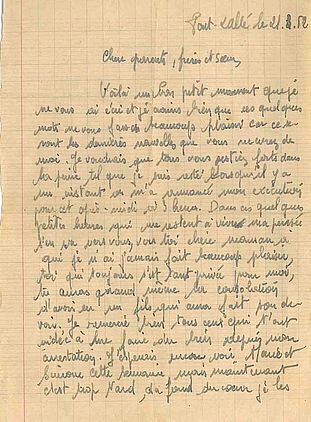 Font-Salté le 21.8.52
Chers parents, frères et Sœur,
Voilà un bon petit moment que je
ne vous ai écrit et je crains bien que ces quelques
mots ne vous fassent beaucoup plaisir car ce
sont les dernières nouvelles que vous recevrez de
moi. Je voudrais que tous vous restiez forts dans
la peine tel que je suis resté lorsqu'il y a
un instant on m'a annoncé mon exécution
pour cet après-midi à 3 heures. Dans ces quelques
petites heures qui me restent à vivre ma pensée
s'en va vers vous, vers toi chère maman à
qui je n'ai jamais fait beaucoup plaisir,
toi qui toujours s'est tant privée pour moi,
tu auras quand même la consolation
d'avoir eu un fils qui aura fait son de-
voir. Je remercie bien tous ceux qui t'ont
aidée à me faire du bien depuis mon
arrestation. J'espérais encore voir et
Simone cette semaine mais maintenant
c'est trop tard. du fond du cœur je les